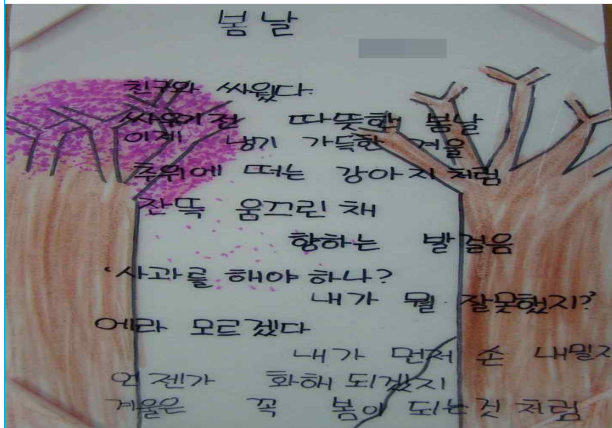 봄날
친구와 싸웠다.
싸우기 전 따뜻한 봄날
이제 냉기 가득한 겨울
추위에 떠는 강아지 처럼
잔뜩 움끄린 채
향하는 발걸음
'사과를 해야 하나?
내가 뭘 잘못했지?'
에라 모르겠다
내가 먼저 손 내밀지
언젠가 화해 되겠지
겨울은 꼭 봄이 되는것 처럼